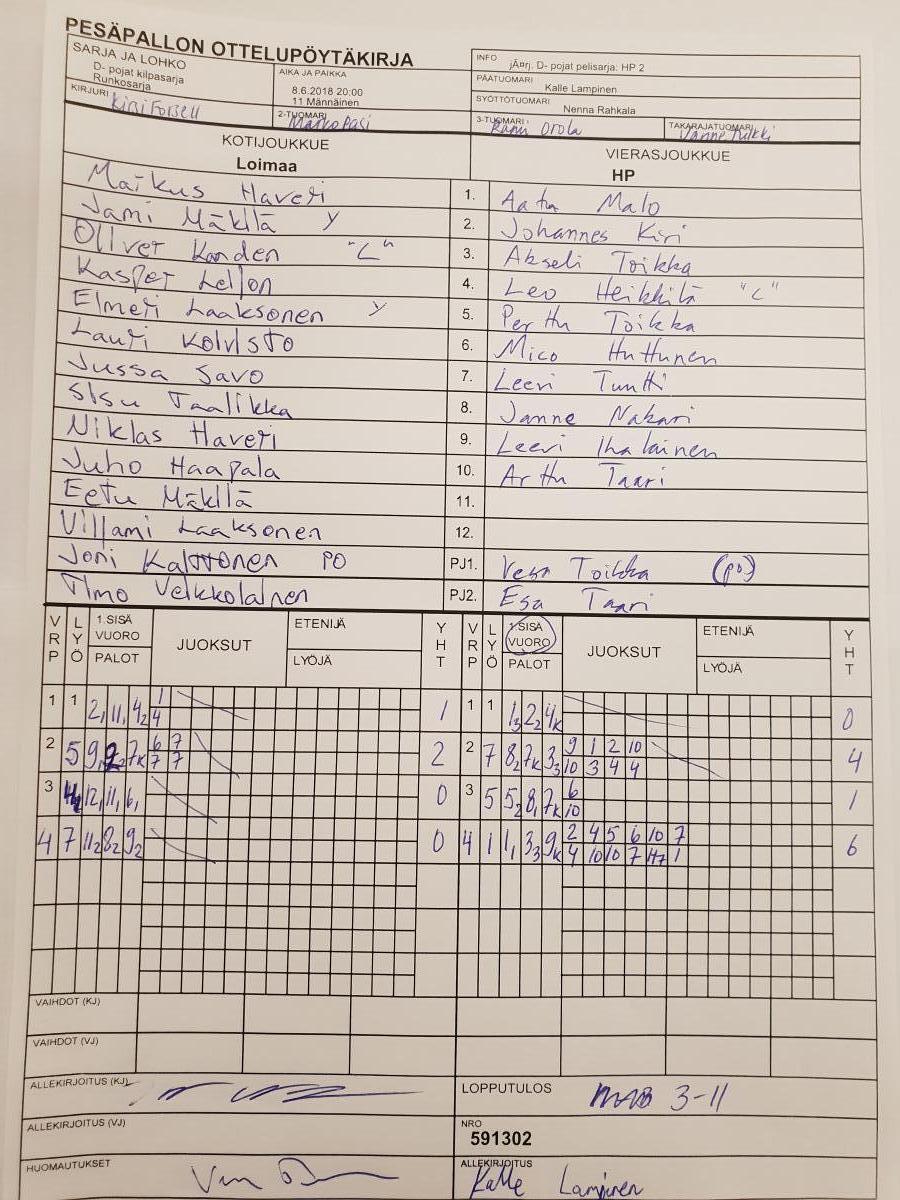 PESÄPALLON OTTELUPÖYTÄKIRJA
SARJA JA LOHKO
D- pojat kilpasarja
Runkosarja
AIKA JA PAIKKA
8.6.2018 20:00
11 Männäinen
INFO jÃ¤rj. D- pojat pelisarja: HP 2
PÄÄTUOMARI
Kalle Lampinen
SYÖTTÖTUOMARI
Nenna Rahkala
KIRJURI Kirsi Forsell
2-TUOMARI Marko Pasi
3-TUOMARI Orola
TAKARAJATUOMARI
KOTIJOUKKUE
Loimaa
VIERASJOUKKUE
HP
Markus Haveri 1. Aatu Malo
Jami Mäkilä y 2. Johannes Kiri
Oliver Kanden "C" 3. Akseli Toikka
Kasper 4. Leo Heikkilä "C"
Elmeri Laaksonen y 5. Perttu Toikka
Lauri Koivisto 6. Mico Huttunen
Jussa Savo 7. Leevi Tuntti
Sisu Taalikka 8. Janne Nakari
Niklas Haveri 9. Leevi Ihalainen
Juho Haapala 10. Arttu Taari
Eetu Mäkilä 11.
Viljami Laaksonen 12.
Joni Kalttonen PO PJ1. Vesa Toikka (po)
Timo Veikkolainen PJ2. Esa Taari
VRP LYÖ 1.SISÄ VUORO PALOT JUOKSUT ETENIJÄ LYÖJÄ YHT VRP LYÖ 1.SISÄ VUORO PALOT JUOKSUT ETENIJÄ LYÖJÄ YHT
1 1 2, 11, 4₂ 1 1 1 1 1₃ 2₂ 4k 0
4
2 5 9, 2 7k 6 7 2 2 7 8₂ 7k 3₃ 9 1 2 10 4
7 7 10 3 4 4
3 12, 11, 6, 0 3 5 5₂ 8, 7k 6 1
10
4 7 11₂ 8₂ 9₂ 0 4 1 1, 3₃ 9k 2 4 5 6 10 7 6
4 10 10 7 1
VAIHDOT (KJ)
VAIHDOT (VJ)
ALLEKIRJOITUS (KJ)
LOPPUTULOS 3-11
ALLEKIRJOITUS (VJ)
NRO
591302
HUOMAUTUKSET
ALLEKIRJOITUS
Kalle Lampinen